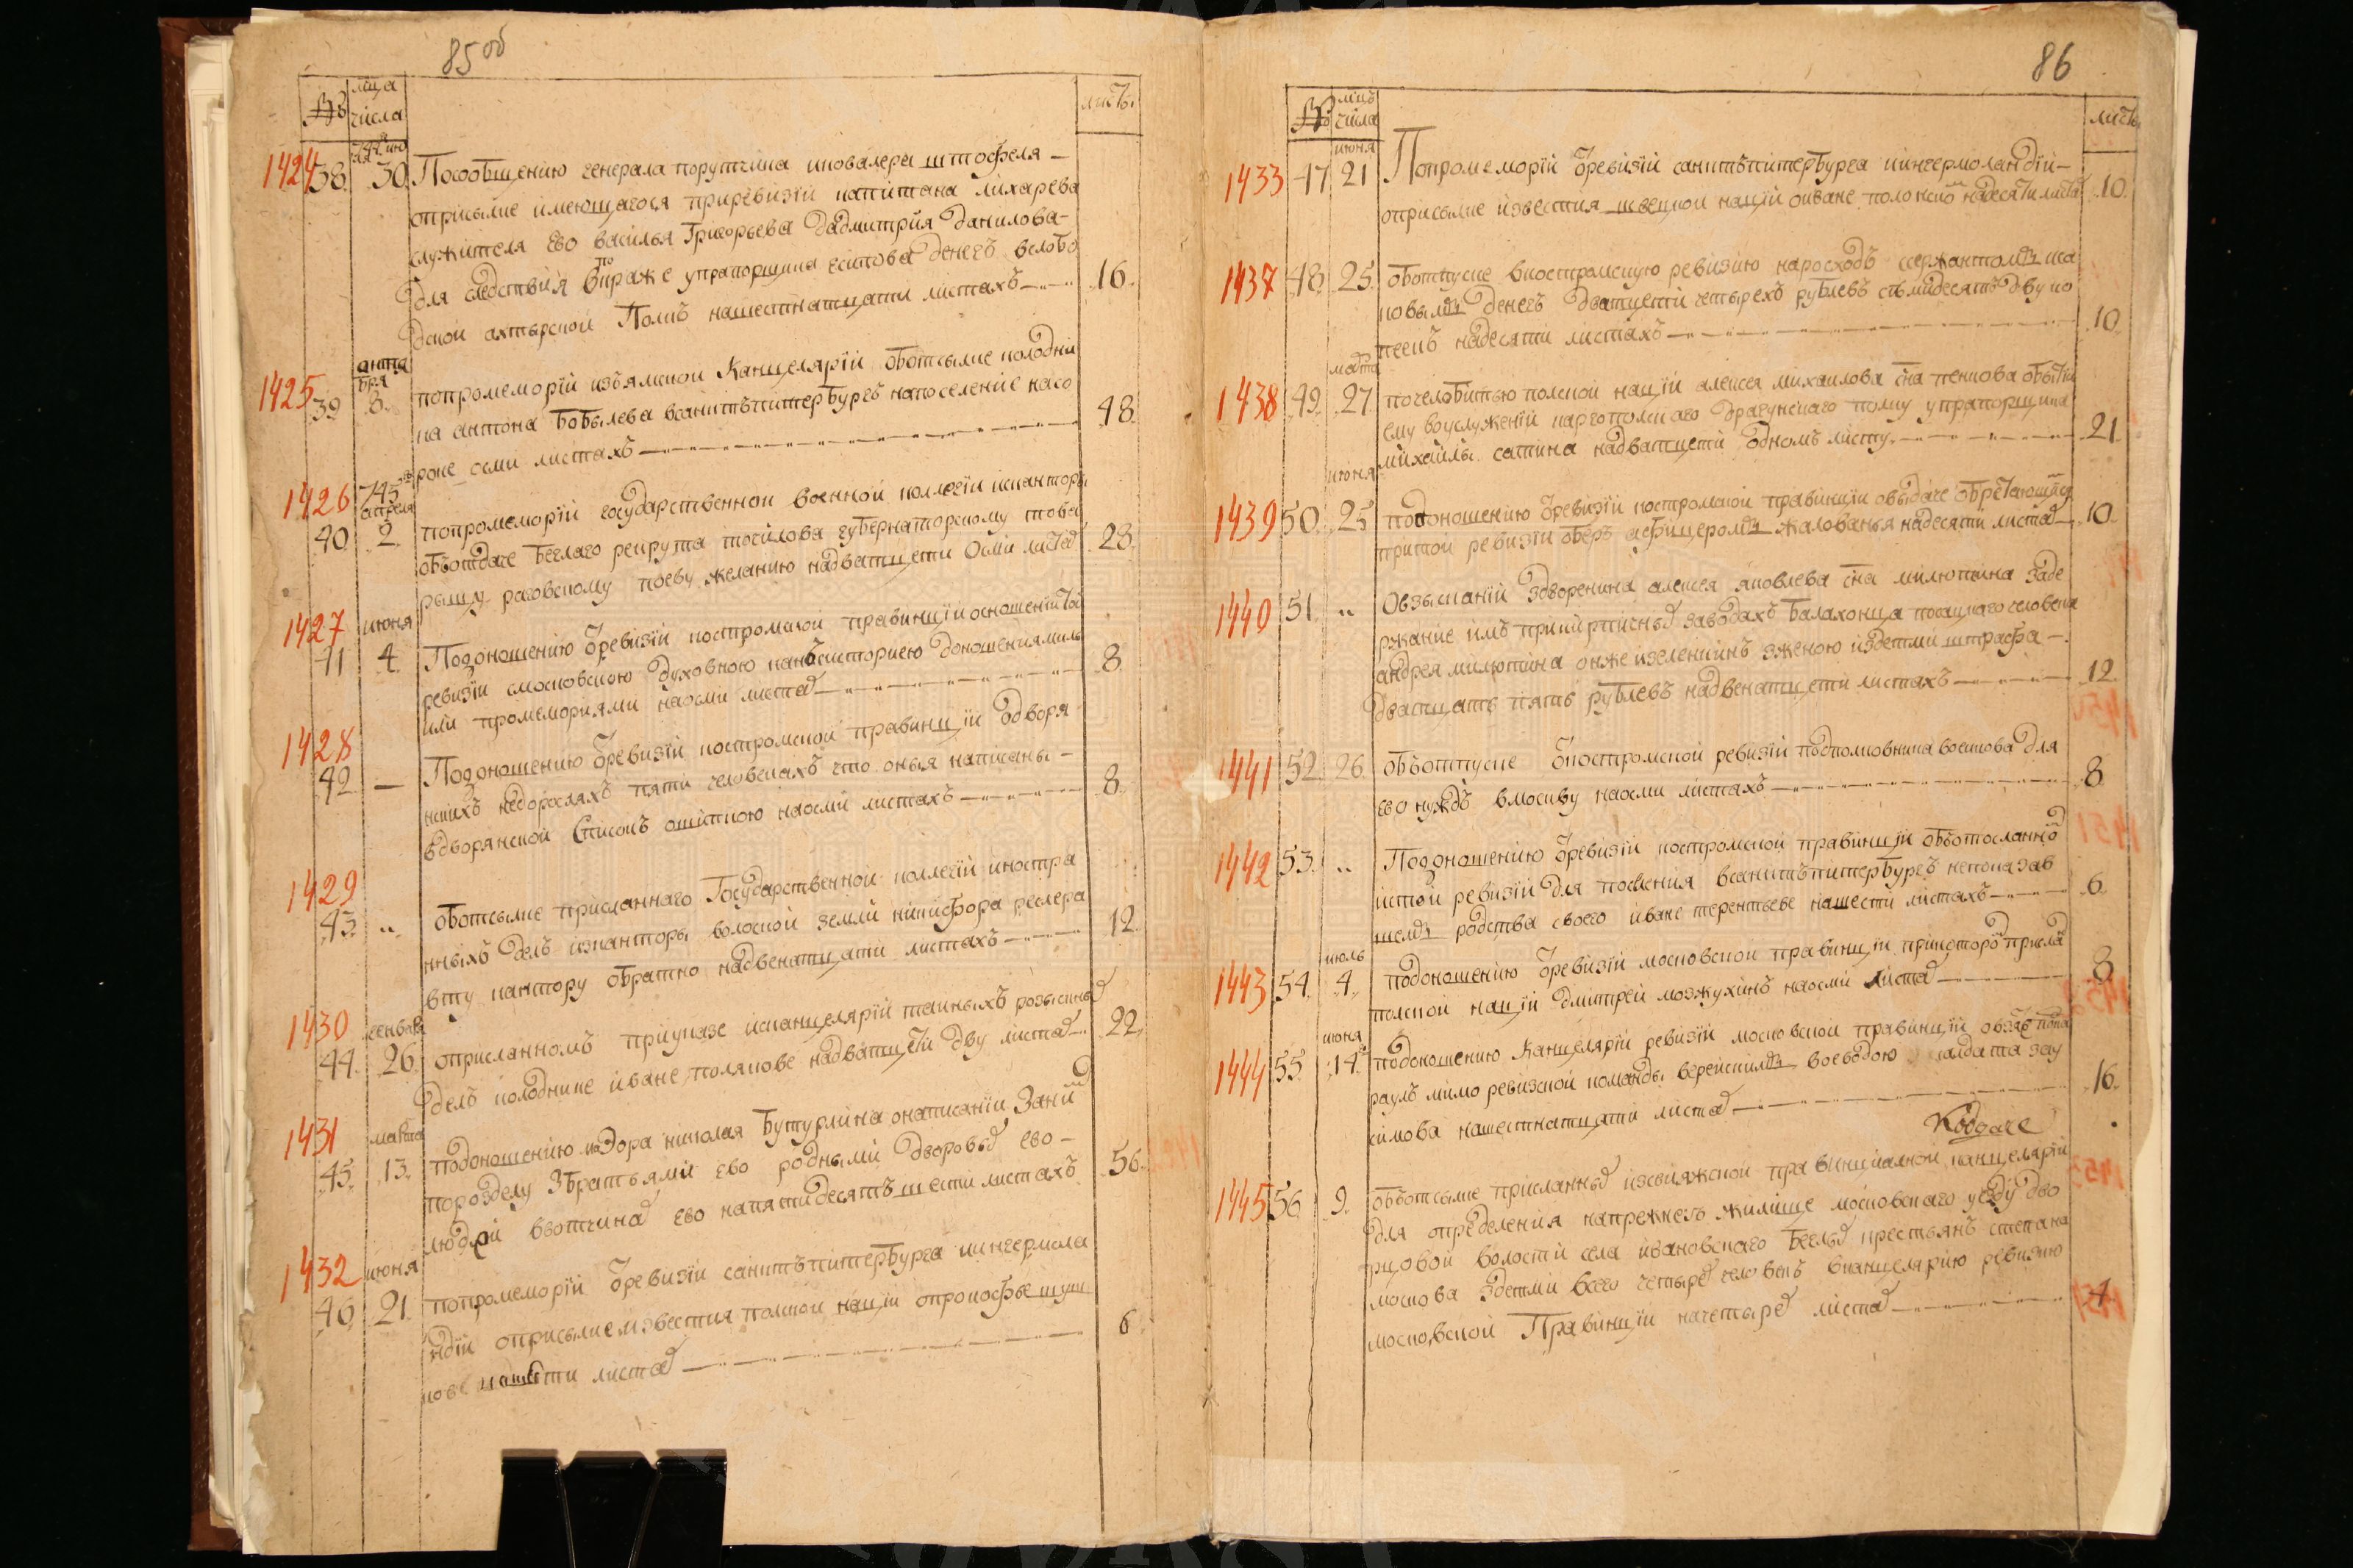 85 об
№
мца
числа
листы
1424
38.
30
Посообщению генерала порутчика иковалера штофеля
отрисылке имеющагося приревизiи капитана лихарева
служителя ево василья Григорьева дадмитрия данилова
для следствия впокраже упрапорщика денегъ вслобо
по
дской ахтырской Полкъ нашестнатцати листахъ
16.
1425
октя
бря
39
8.
попромеморiи изъямской Канцелярiи оботсылке колодни
ка антона бобылева всанктъпитербургъ напоселенiе насо
роке осми листахъ
48.
1426
745
апреля
40
2.
попромеморiи государственной военной коллегiи исканторы
оботдаче беглаго рекрута губернаторскому това
рыщу раговскому поеву желанию надватцети осми листах
28.
1427
июня
41
4.
Подоношению ѿревизiи костромской правинцiи осношенiи той
ревизiи смосковскою духовною канъсисториею доношениями
или промемориями наосми листах
8
1428
42.
Подоношению ѿревизiи костромской правинцiи одворя
нскихъ недорослях пяти человекахъ что оныя написаны
вдворянской списокъ ошипкою наосми листахъ
8.
1429
43.
оботсылке присланнаго Государственной коллегiи иностра
нныхъ делъ исканторы волоской земли никифора реслера
вту кантору обратно надвенатцати листахъ
12.
1430
генваря
44.
26.
оприсланномъ приуказе исканцелярiи тайныхъ розыскных
делъ колоднике иване полякове надватцети дву листах
22.
1431
марта
45.
13.
подоношению маэора николая бутурлина онаписанiи заним
порозделу збратьями ево родными дворовых ево
людей ввотчинах ево напятидесятъ шести листахъ
56.
1432
июня
46.
21.
попромеморiи ѿревизiи санктъпитербурга иингермола
ндiи оприсылке известия полской нацiи опрокофье шуш
кове нашести листах
6.
86
№
мцъ
числа
листы
июня
1433
47
21
Попромеморiи ѿревизiи санктъпитербурга иингермоландiи
оприсылке известия швецкой нацiи оиване полонской надесяти листах
10.
1437
48
25.
оботпуске вкостромскую ревизию наросходъ сержантомъ
новымъ денегъ дватцети четырехъ рублевъ сьмидесятъ дву ко
пеекъ надесяти листахъ
10.
марта
1438
49.
27.
почелобитью полской нацiи алексея михаилова сна пенкова обытiи
ему вуслуженiи каргополскаго драгунскаго полку упрапорщика
михайлы сатина надватцети одномъ листу
21.
июня
1439
50.
25
подоношению ѿревизiи костромской правинции овыдаче обретающимся
притой ревизiи оберъ афицеромъ жалованья надесяти листах
10.
1440
51.
Овзысканiи здворенина алексея яковлева сна милюткина заде
ржание имъ прикирпичных заводахъ балахонца посацкого человека
андрея милютина онже изеленкинъ зженою издетми штрафа
дватцать пять рублевъ надвенатцети листахъ
12.
1441
52.
26.
объотпуске ѿкостромской ревизiи подполковника воейкова для
ево нуждъ вмоскву наосми листахъ
8.
1442
53.
Подоношению ѿревизiи костромской правинцiи оботосланном
истой ревизiи для поселения всанктъпитербургъ непоказав
шемъ родства своего иване терентьеве нашести листахъ
6.
июль
1443
54.
4.
подоношению ѿревизiи московской правинцiи прикоторой прислан
полской нацiи дмитрей мозжухинъ наосми листах
8.
июня
1444
55.
14.
подоношению Канцелярiи ревизiи московской правинцiи овзятье подка
раулъ мимо ревизской команды верейскимъ воеводою салдата
симова нашестнатцати листах
16.
Коодаче
1445
56.
9.
объотсылке присланных изсвияжской правинциалной канцелярiи
для определения напрежнеѣ жилище московскаго уезду дво
рцовой волости села ивановскаго беглых крестьянъ степана
москова здетми всего четырех человекъ вканцелярию ревизию
московской Правинцiи начетырех листах
4.